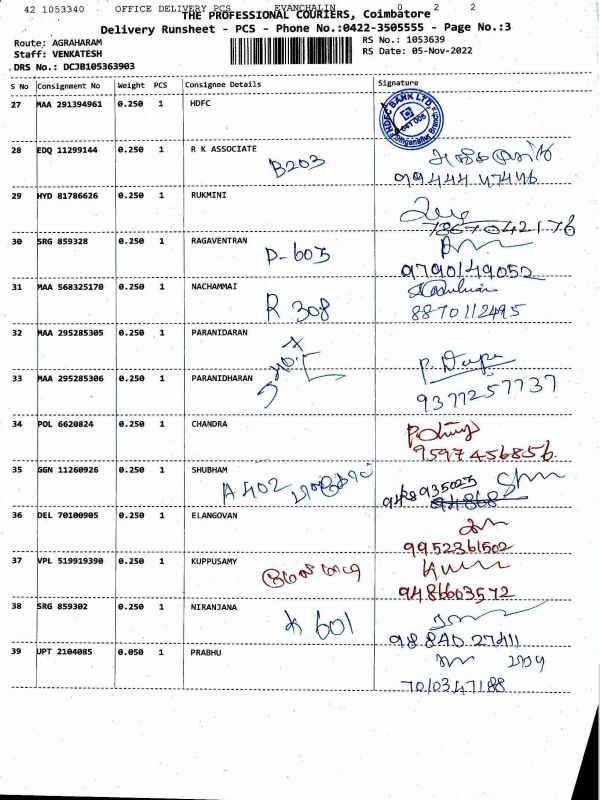 42 1053340 OFFICE DELIVERY PCS EVANCHALIN 0 2 2
THE PROFESSIONAL COURIERS, Coimbatore
Delivery Runsheet - PCS - Phone No.:0422-3505555 - Page No.:3
Route: AGRAHARAM RS No.: 1053639
Staff: VENKATESH RS Date: 05-Nov-2022
DRS No.: DCJB105363903
S No Consignment No Weight PCS Consignee Details Signature
27 MAA 291394961 0.250 1 HDFC
HDFC BANK LTD.
28 EDQ 11299144 0.250 1 R K ASSOCIATE
B203
99444 47476
29 HYD 81786626 0.250 1 RUKMINI
7867042176
30 SRG 859328 0.250 1 RAGAVENTRAN
D-603
9790149052
31 MAA 568325170 0.250 1 NACHAMMAI
R 308
8870112495
32 MAA 295285305 0.250 1 PARANIDARAN
33 MAA 295285306 0.250 1 PARANIDHARAN
9377257737
34 POL 6620824 0.250 1 CHANDRA
9597456856
35 GGN 11260926 0.250 1 SHUBHAM
A 402
9488935023
36 DEL 70100905 0.250 1 ELANGOVAN
9952361502
37 VPL 519919390 0.250 1 KUPPUSAMY
9486603572
38 SRG 859302 0.250 1 NIRANJANA
K 601
98840 27411
39 UPT 2104085 0.050 1 PRABHU
7010347188